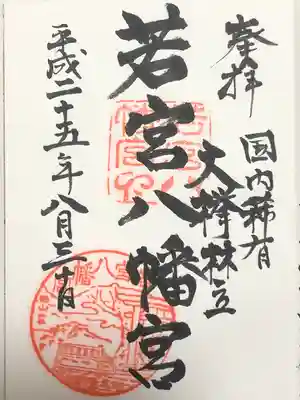 奉拝
国内稀有
大欅林立
若宮八幡宮
平成二十五年八月三十日